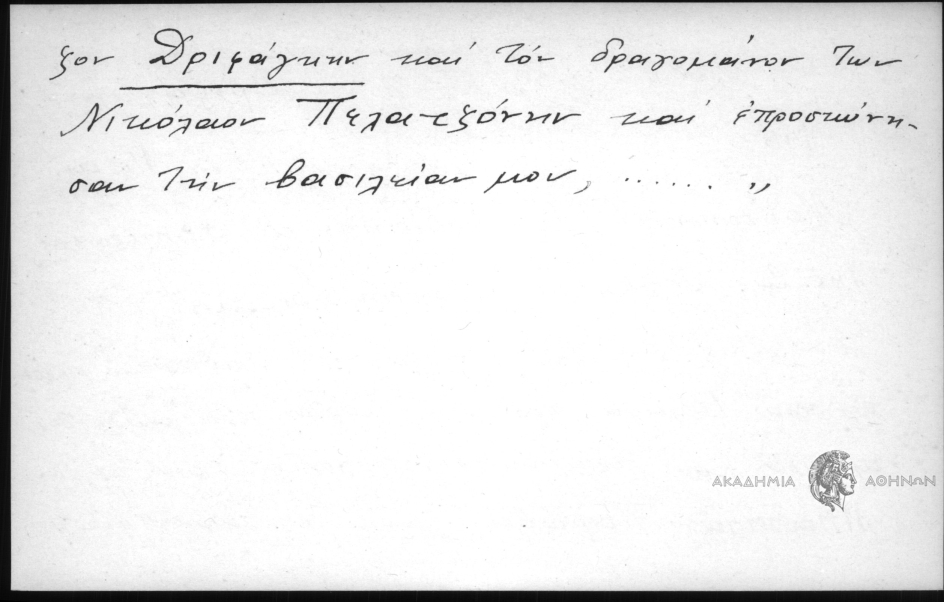 ξον Δριφάγκην καί τόν δραγομάνον των
Νικόλαον Πελατεζόνην καί ἐπροσκύνη-
σαν τήν βασιλείαν μου, ...... „
ΑΚΑΔΗΜΙΑ ΑΘΗΝΩΝ